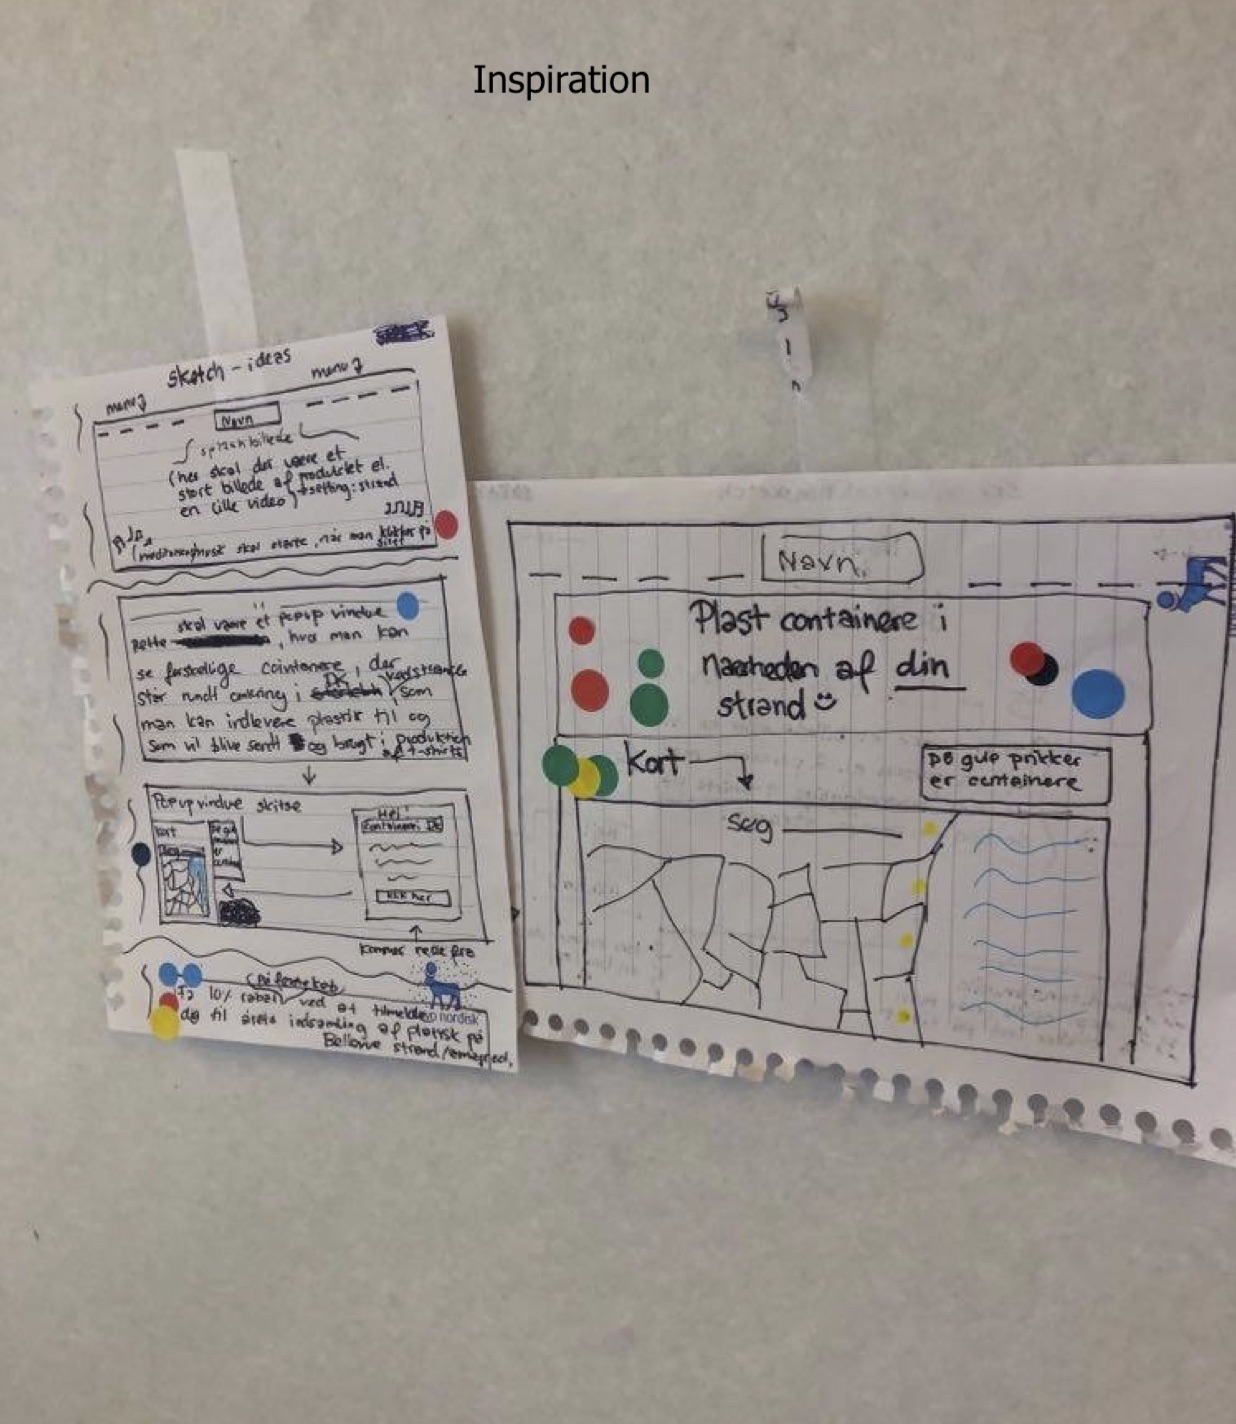 Inspiration
sketch - ideas
menu
menu
Navn
splash billede
(her skal der være et
stort billede af produktet el.
en lille video) + setting: strand
skal starte, når man klikker på
sitet
skal være et popup vindue
Dette , hvor man kan
se forskellige containere, der
står rundt omkring i DK som
man kan indlevere plastik til og
som vil blive sendt og brugt i produktion
af t-shirts
Popup vindue skitse
Kort
Hej!
Containere i DK
Klik her
kommer
Få 10% rabat ved at tilmelde
dig til årets indsamling af på
Bellevue strand
nordisk
Navn
Plast containere i
nærheden af din
strand
Kort
De gule prikker
er containere
Søg